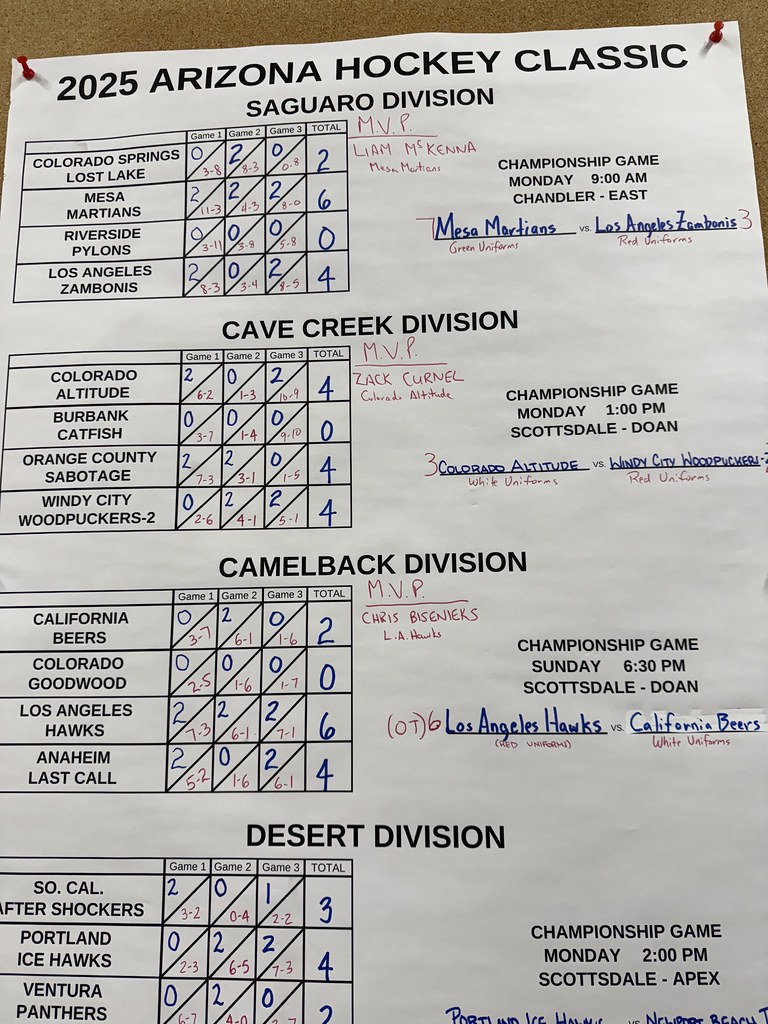 2025 ARIZONA HOCKEY CLASSIC
SAGUARO DIVISION
Game 1 Game 2 Game 3 TOTAL
COLORADO SPRINGS LOST LAKE 0 3-8 2 8-3 0 0-8 2
MESA MARTIANS 2 11-3 2 4-3 2 8-0 6
RIVERSIDE PYLONS 0 3-11 0 3-8 0 5-8 0
LOS ANGELES ZAMBONIS 2 8-3 0 3-4 2 8-5 4
M.V.P.
LIAM McKENNA
Mesa Martians
CHAMPIONSHIP GAME
MONDAY 9:00 AM
CHANDLER - EAST
7 Mesa Martians vs. Los Angeles Zambonis 3
Green Uniforms Red Uniforms
CAVE CREEK DIVISION
Game 1 Game 2 Game 3 TOTAL
COLORADO ALTITUDE 2 6-2 0 1-3 2 10-9 4
BURBANK CATFISH 0 3-7 0 1-4 0 9-10 0
ORANGE COUNTY SABOTAGE 2 7-3 2 3-1 0 1-5 4
WINDY CITY WOODPUCKERS-2 0 2-6 2 4-1 2 5-1 4
M.V.P.
ZACK CURNEL
Colorado Altitude
CHAMPIONSHIP GAME
MONDAY 1:00 PM
SCOTTSDALE - DOAN
3 COLORADO ALTITUDE vs. WINDY CITY WOODPUCKERS-2
White Uniforms Red Uniforms
CAMELBACK DIVISION
Game 1 Game 2 Game 3 TOTAL
CALIFORNIA BEERS 0 3-7 2 6-1 0 1-6 2
COLORADO GOODWOOD 0 2-5 0 1-6 0 1-7 0
LOS ANGELES HAWKS 2 7-3 2 6-1 2 7-1 6
ANAHEIM LAST CALL 2 5-2 0 1-6 2 6-1 4
M.V.P.
CHRIS BISENIEKS
L.A. Hawks
CHAMPIONSHIP GAME
SUNDAY 6:30 PM
SCOTTSDALE - DOAN
(OT) 6 Los Angeles Hawks vs. California Beers
(RED UNIFORMS) White Uniforms
DESERT DIVISION
Game 1 Game 2 Game 3 TOTAL
SO. CAL. AFTER SHOCKERS 2 3-2 0 0-4 1 2-2 3
PORTLAND ICE HAWKS 0 2-3 2 6-5 2 7-3 4
VENTURA PANTHERS 0 6-7 2 4-0 0 2
CHAMPIONSHIP GAME
MONDAY 2:00 PM
SCOTTSDALE - APEX
PORTLAND ICE HAWKS vs. NEWPORT BEACH